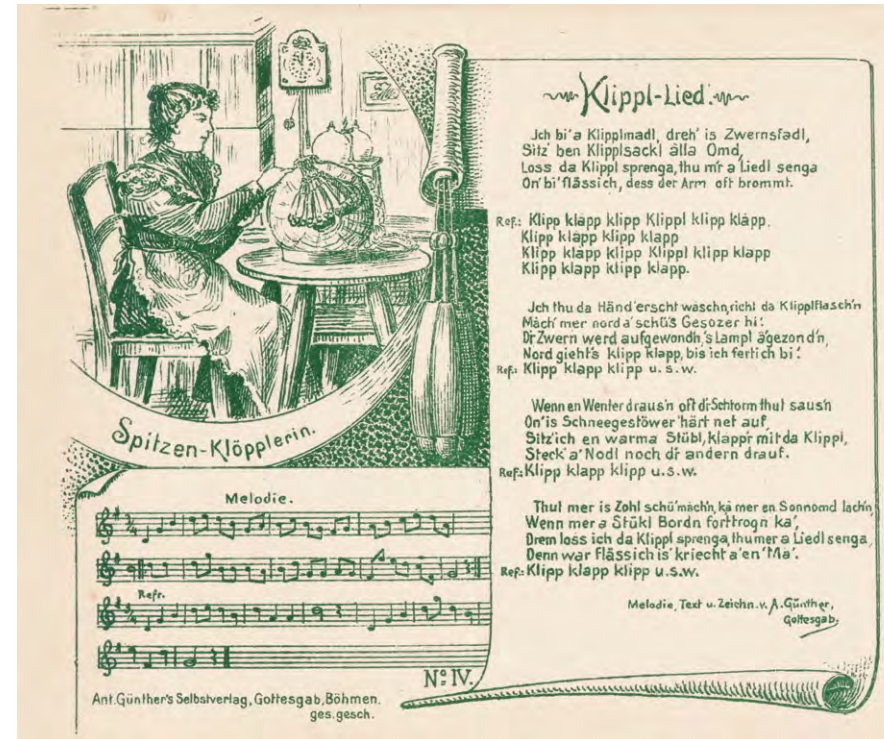 Klippl-Lied.
Jch bi'a Klipplmadl, dreh' is Zwernsfadl,
Sitz' ben Klipplsackl älla Omd,
Loss da Klippl sprenga, thu m'r a Liedl senga
On' bi' flässich, dess der Arm oft brommt.
Ref.: Klipp klapp klipp Klippl klipp klapp.
Klipp klapp klipp klapp
Klipp klapp klipp Klippl klipp klapp
Klipp klapp klipp klapp.
Jch thu da Händ' erscht waschn, richt da Klipplflasch'n
Mach' mer nord a' schüs Gesozer hi'.
Dr Zwern werd aufgewondn, 's Lampl ägezond'n,
Nord gieht's klipp klapp, bis ich fertich bi'.
Ref.: Klipp klapp klipp u.s.w.
Wenn en Wenter draus'n oft dr Schtorm thut saus'n
On' is Schneegestöwer härt net auf,
Sitz' ich en warma Stübl, klapp'r mit da Klippl,
Steck' a' Nodl noch dr andern drauf.
Ref.: Klipp klapp klipp u.s.w.
Thut mer is Zohl schü' mach'n, kä mer en Sonnomd lach'n,
Wenn mer a Stükl Bordn forttrogn ka',
Drem loss ich da Klippl sprenga, thu mer a Liedl senga,
Denn war flässich is' kriecht a' en' Ma'.
Ref.: Klipp klapp klipp u.s.w.
Melodie, Text u. Zeichn. v. A. Günther,
Gottesgab.
Spitzen-Klöpplerin.
Melodie.
Refr.
No. IV.
Ant. Günther's Selbstverlag, Gottesgab, Böhmen.
ges. gesch.